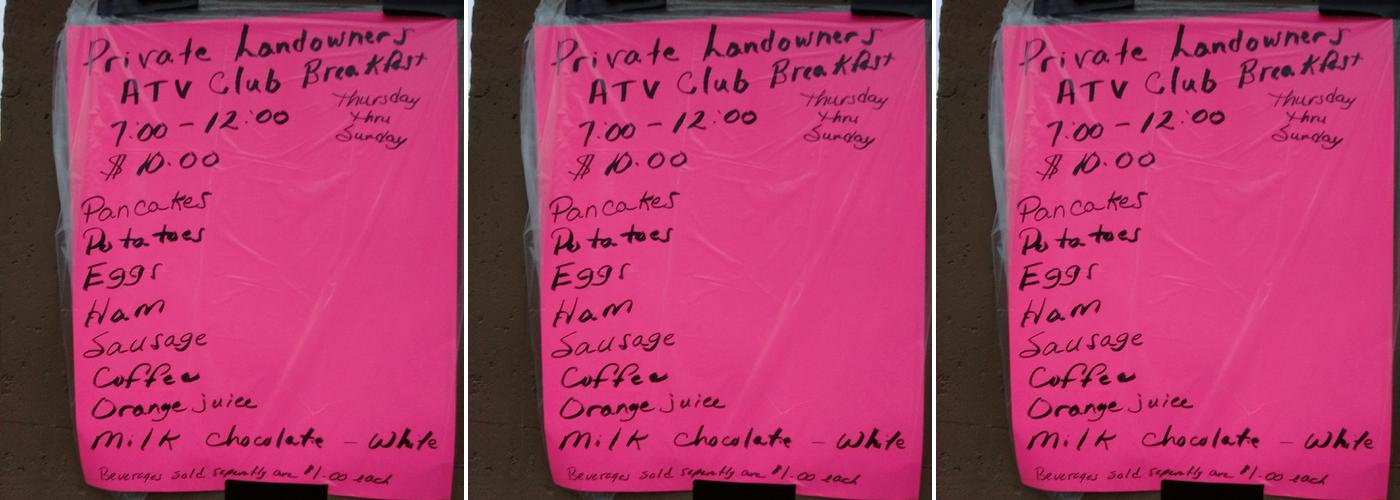 Private Landowners
ATV Club Breakfast
Thursday
thru
Sunday
7:00 - 12:00
$ 10.00
Pancakes
Potatoes
Eggs
Ham
Sausage
Coffee
Orange juice
Milk chocolate - white
Beverages sold are $1.00 each
Private Landowners
ATV Club Breakfast
Thursday
thru
Sunday
7:00 - 12:00
$ 10.00
Pancakes
Potatoes
Eggs
Ham
Sausage
Coffee
Orange juice
Milk chocolate - white
Beverages sold are $1.00 each
Private Landowners
ATV Club Breakfast
Thursday
thru
Sunday
7:00 - 12:00
$ 10.00
Pancakes
Potatoes
Eggs
Ham
Sausage
Coffee
Orange juice
Milk chocolate - white
Beverages sold are $1.00 each